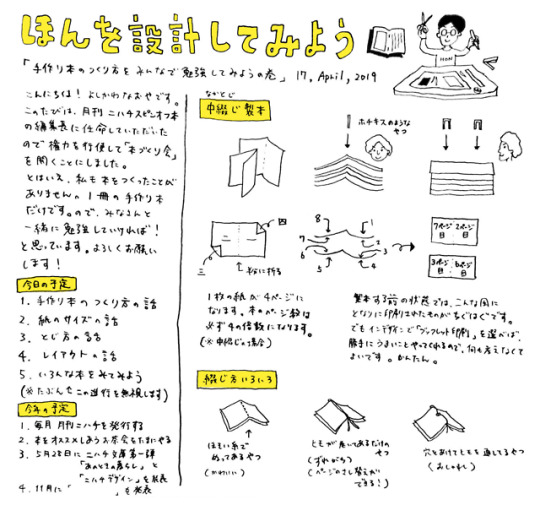 ほんを設計してみよう
「手作り本のつくり方をみんなで勉強してみようの巻」 17, April, 2019
こんにちは！よしかわなおやです。
このたびは、月刊ニハチスピンオフ本
の編集長に任命していただいた
ので権力を行使して「本づくり会」
を開くことにしました。
とはいえ、私も本をつくったことが
ありません。1冊の手作り本
だけです。ので、みなさんと
一緒に勉強していければ！
と思っています。よろしくお願い
します！
今日の予定
1. 手作り本のつくり方の話
2. 紙のサイズの話
3. とじ方の話
4. レイアウトの話
5. いろんな本をみてみよう
(※たぶんこの進行を無視します)
今年の予定
1. 毎月月刊ニハチを発行する
2. 本をオススメしあうお茶会をたまにやる
3. 5月28日にニハチ文庫第一弾
「あのときの暮らし」と
「ニハチデザイン」を発表
4. 11月に「　　」を発表
なかとじ
中綴じ製本
ホチキスのような
やつ
一
二
三
四
山に折る
8
7
6
5
1
2
3
4
7ページ目
2ページ目
3ページ目
6ページ目
1枚の紙が4ページに
なります。本のページ数は
必ず4の倍数になります。
(※中綴じの場合)
製本する前の状態では、こんな風に
となりに印刷されたものがちぐはぐです。
でもインデザインで「ブックレット印刷」を選べば、
勝手にうまいことやってくれるので、何も考えなくて
よいです。かんたん。
綴じ方いろいろ
ほそい糸で
ぬってあるやつ
(かわいい)
ひもが巻いてあるだけの
やつ
(ずれがち)
(ページのさし替えが
できる！)
穴をあけてひもを通してるやつ
(おしゃれ)